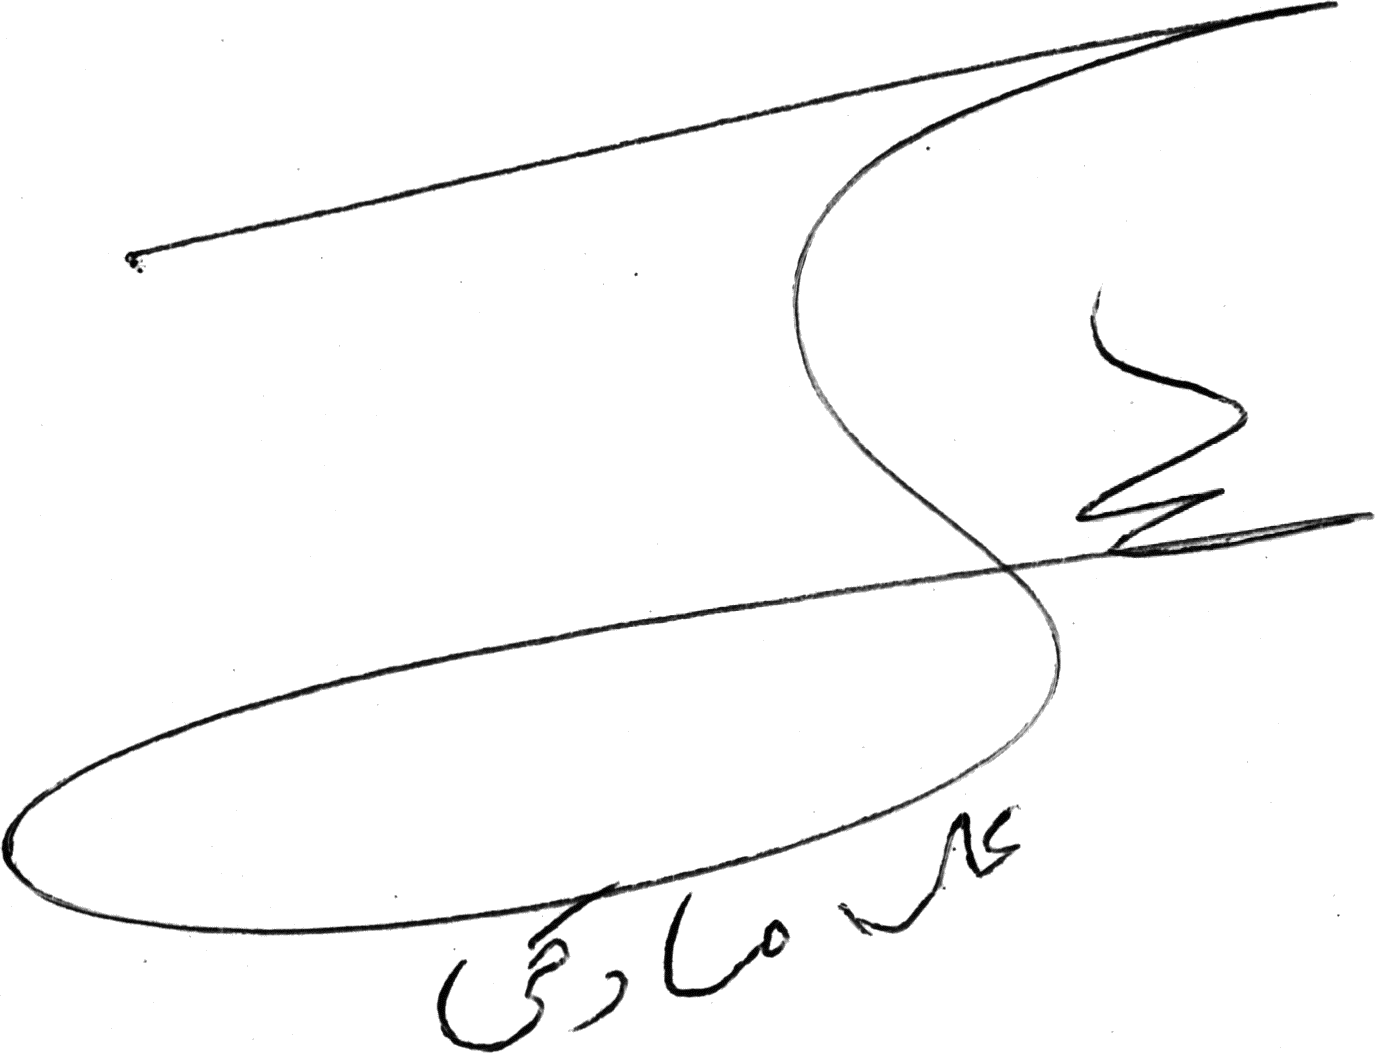 علی صادقی